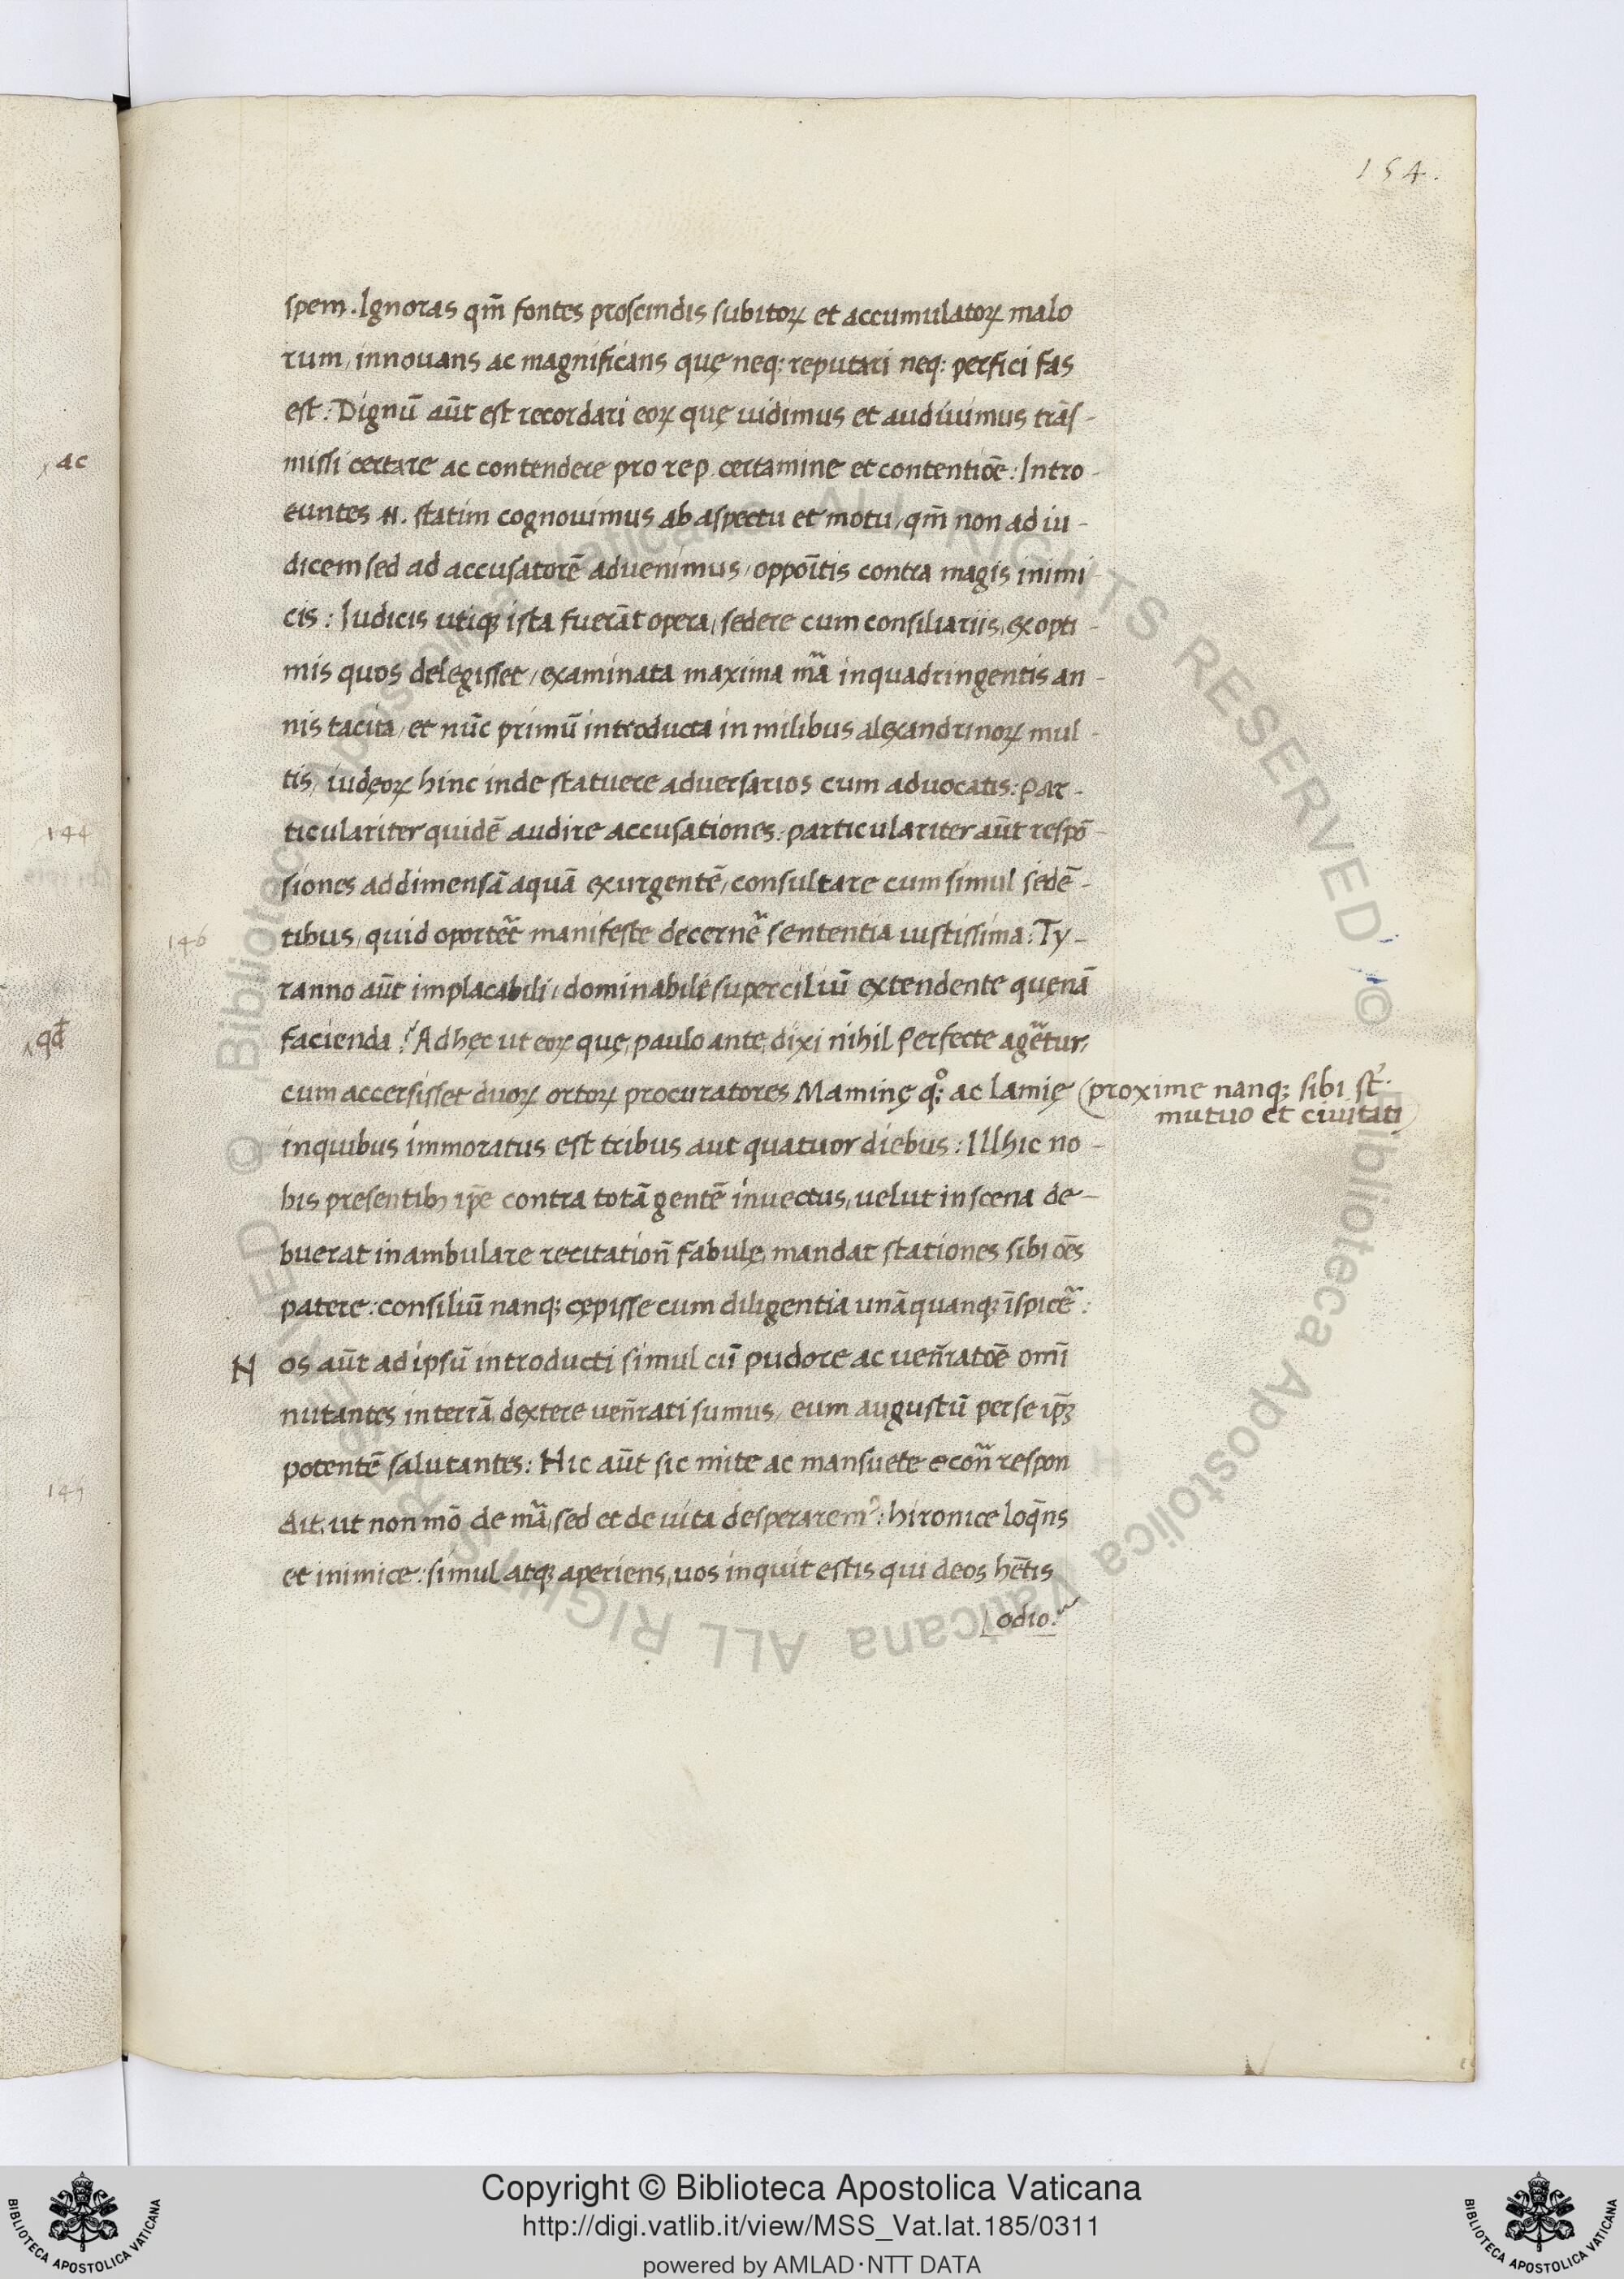 154.
spem. Ignoras qm̄ fontes proscindis subitoꝝ et accumulatoꝝ malo
rum, innouans ac magnificans quę neq: reputari neq: perfici fas
est: Dignū aūt est recordari eoꝝ quę uidimus et audiuimus trās-
missi certare ac contendere pro rep. certamine et contentiōe: Intro-
euntes .N. statim cognouimus ab aspectu et motu, qm̄ non ad iu-
dicem sed ad accusatorē aduenimus, oppoītis contra magis inimi-
cis: Iudicis utiqꝫ ista fuerāt opera, sedere cum consiliariis, ex opti-
mis quos delegisset, examinata maxima mā in quadringentis an-
nis tacita, et nūc primū introducta in milibus alexandrinoꝝ mul-
tis, iudęoꝝ hinc inde statuere aduersarios cum aduocatis: par-
ticulariter quidē audire accusationes: particulariter aūt respō-
siones ad dimensā aquā exurgentē, consultare cum simul sedē-
tibus, quid oportēt manifeste decernē sententia iustissima: Ty-
ranno aūt implacabili, dominabile superciliū extendente quęnā
facienda? Ad hęc ut eoꝝ quę, paulo ante, dixi nihil perfecte agētur,
cum accersisset duoꝝ ortoꝝ procuratores Maminę qꝫ ac lamię (proxime nanqꝫ sibi st̄.
mutuo et ciuitati)
in quibus immoratus est tribus aut quatuor diebus: Illhic no-
bis presentibꝫ ip̄e contra totā gentē inuectus, uelut in scena de-
buerat inambulare recitation̄ fabulę, mandat stationes sibi oēs
patere: consiliū nanqꝫ cępisse cum diligentia unā quanqꝫ īspicē:
Nos aūt ad ipsū introducti simul cū pudore ac uen̄ratoē omī
nutantes in terrā, dextere uen̄rati sumus, eum augustū per se ip̄ꝫ
potentē salutantes: Hic aūt sic mite ac mansuete econ̄ respon
dit, ut non mō de mā, sed et de uita desperarem᾽: hironice loq̄ns
et inimice: simul atqꝫ aperiens, uos inquit estis qui deos hētis
odio.
146
ac
144
qđ
Copyright © Biblioteca Apostolica Vaticana
http://digi.vatlib.it/view/MSS_Vat.lat.185/0311
powered by AMLAD·NTT DATA
BIBLIOTECA APOSTOLICA VATICANA
BIBLIOTECA APOSTOLICA VATICANA
© Biblioteca Apostolica Vaticana ALL RIGHTS RESERVED
© Biblioteca Apostolica Vaticana ALL RIGHTS RESERVED